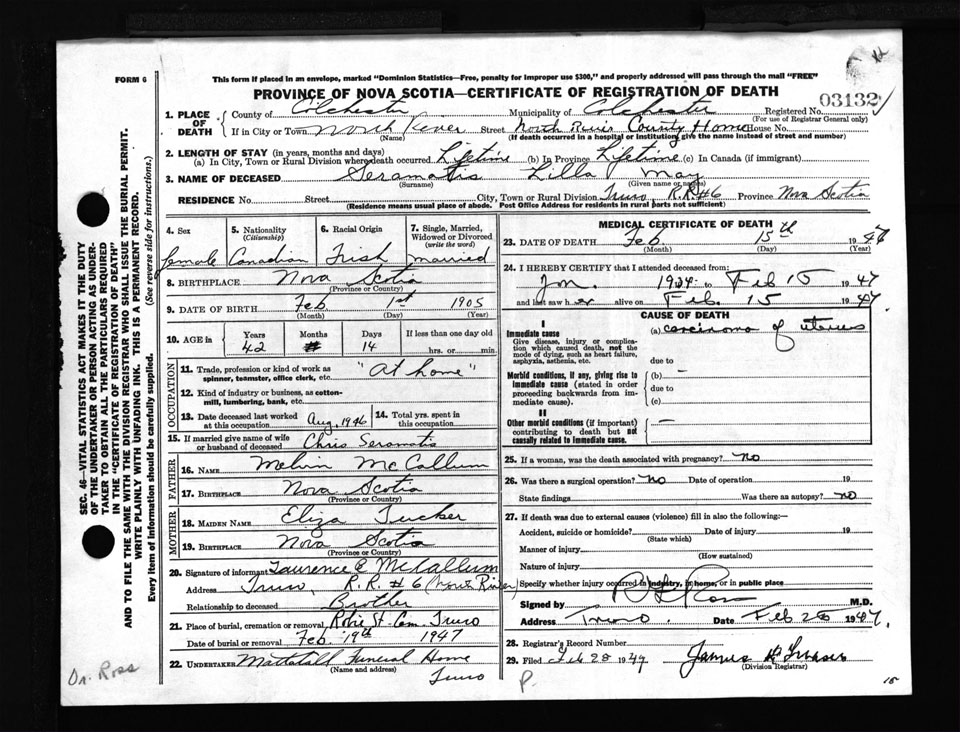 FORM 6
This form if placed in an envelope, marked "Dominion Statistics—Free, penalty for improper use $300," and properly addressed will pass through the mail "FREE"
PROVINCE OF NOVA SCOTIA—CERTIFICATE OF REGISTRATION OF DEATH
03132
1. PLACE OF DEATH County of Colchester Municipality of Colchester Registered No.
(For use of Registrar General only)
If in City or Town North River Street North River County Home House No.
(Name) (If death occurred in a hospital or institution, give the name instead of street and number)
2. LENGTH OF STAY (in years, months and days)
(a) In City, Town or Rural Division where death occurred Lifetime (b) In Province Lifetime (c) In Canada (if immigrant)
3. NAME OF DECEASED Seramatis Lilla May
(Surname) (Given name or names)
RESIDENCE No. Street City, Town or Rural Division Truro, R.R.#6 Province Nova Scotia
(Residence means usual place of abode. Post Office Address for residents in rural parts not sufficient)
4. Sex 5. Nationality (Citizenship) 6. Racial Origin 7. Single, Married, Widowed or Divorced (write the word)
female Canadian Irish married
8. BIRTHPLACE Nova Scotia
(Province or Country)
9. DATE OF BIRTH Feb 1st 1905
(Month) (Day) (Year)
10. AGE in Years Months Days If less than one day old
42 14 hrs. or min.
OCCUPATION
11. Trade, profession or kind of work as spinner, teamster, office clerk, etc. "At home"
12. Kind of industry or business, as cotton-mill, lumbering, bank, etc.
13. Date deceased last worked at this occupation Aug, 1946 14. Total yrs. spent in this occupation
15. If married give name of wife or husband of deceased Chris Seramatis
FATHER
16. NAME Melvin McCallum
17. BIRTHPLACE Nova Scotia
(Province or Country)
MOTHER
18. MAIDEN NAME Eliza Tucker
19. BIRTHPLACE Nova Scotia
(Province or Country)
20. Signature of informant Lawrence E McCallum
Address Truro, R.R. #6 (North River)
Relationship to deceased Brother
21. Place of burial, cremation or removal Robie St. Cem. Truro
Date of burial or removal Feb. 19th 1947
22. UNDERTAKER Mattatall Funeral Home
(Name and address) Truro
MEDICAL CERTIFICATE OF DEATH
23. DATE OF DEATH Feb 15th 1947
(Month) (Day) (Year)
24. I HEREBY CERTIFY that I attended deceased from:
Jan. 1934 to Feb 15 1947
and last saw h er alive on Feb. 15 1947
CAUSE OF DEATH
I
Immediate cause (a) carcinoma of uterus
Give disease, injury or complication which caused death, not the mode of dying, such as heart failure, asphyxia, asthenia, etc.
due to
Morbid conditions, if any, giving rise to immediate cause (stated in order proceeding backwards from immediate cause). (b) —
due to
(c)
II
Other morbid conditions (if important) contributing to death but not causally related to immediate cause. —
25. If a woman, was the death associated with pregnancy? No
26. Was there a surgical operation? No Date of operation 19
State findings Was there an autopsy? no
27. If death was due to external causes (violence) fill in also the following:—
Accident, suicide or homicide? Date of injury 19
(State which)
Manner of injury
(How sustained)
Nature of injury
Specify whether injury occurred in industry, in home, or in public place
Signed by Ross M.D.
Address Truro Date Feb 28 1947.
28. Registrar's Record Number
29. Filed Feb 28 1947 James
(Division Registrar)
P.
15
Dr. Ross
SEC. 46—VITAL STATISTICS ACT MAKES IT THE DUTY
OF THE UNDERTAKER OR PERSON ACTING AS UNDER-
TAKER TO OBTAIN ALL THE PARTICULARS REQUIRED
IN THE "CERTIFICATE OF REGISTRATION OF DEATH"
AND TO FILE THE SAME WITH THE DIVISION REGISTRAR WHO SHALL ISSUE THE BURIAL PERMIT.
WRITE PLAINLY WITH UNFADING INK. THIS IS A PERMANENT RECORD.
Every item of information should be carefully supplied. (See reverse side for instructions.)